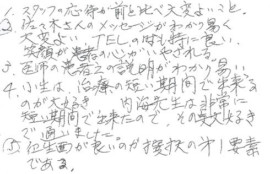 1. スタッフの応待が前と比べ大変よいこと。
2. 佐々木さんのメッセージがわかり易く
大変よい TELの時に良い、
笑顔が患者の心がいやされる
3. 医師の患者への説明がわかり易い
4. 小生は、治療の短い期間で出来る
のが大好き 内海先生は非常に
短い期間で出来たので、その大好き
で通いました
⑤ 衛生面が良いのが選択の第1要素
である。